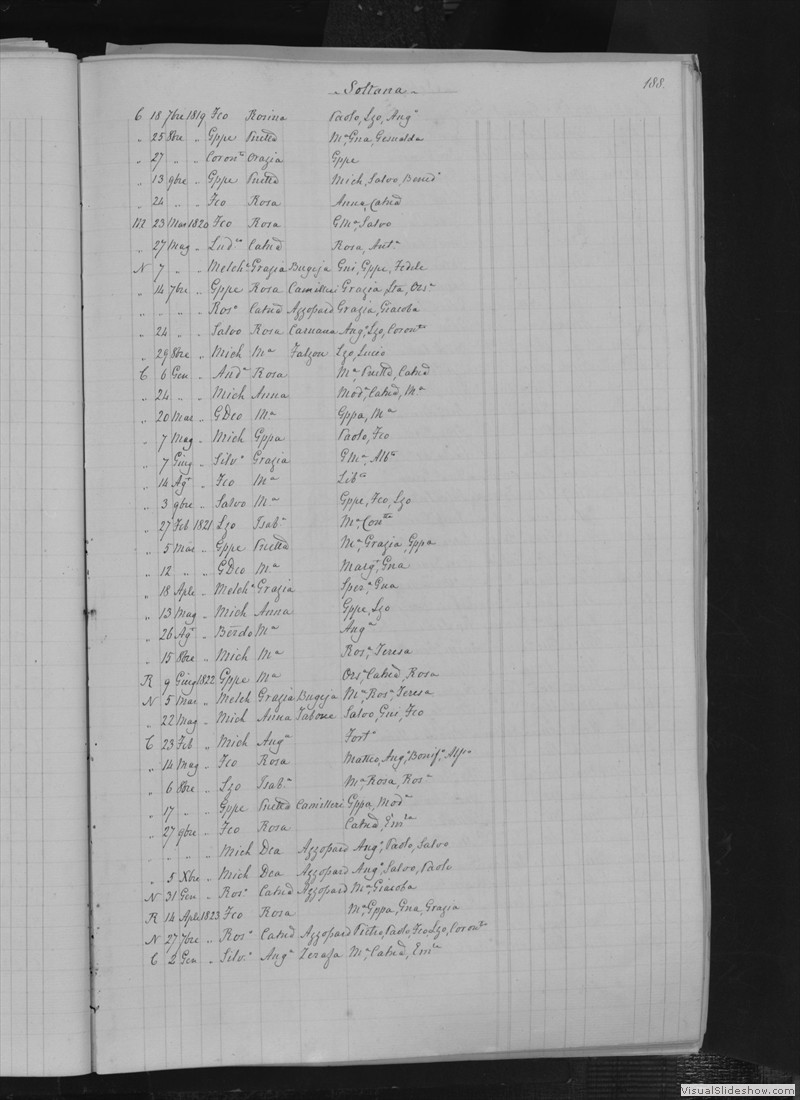 Soltana
188.
C 18 7bre 1819 Fco Rosina Paolo, Lzo, Angª
„ 25 8bre „ Gppe Vnctta Mª, Gna, Gesualda
„ 27 „ „ Coronto Orazia Gppe
„ 13 9bre „ Gppe Vnctta Mich, Salvo, Bened
„ 24 „ „ Fco Rosa Anna, Catnd
M 23 Mar 1820 Fco Rosa GMª, Salvo
„ 27 Mag „ Ludco Catnd Rosa, Antª
N 7 „ „ Melchre Grazia Bugeja Gui, Gppe, Fedele
„ 14 7bre „ Gppe Rosa Camilleri Grazia, Orsª
„ „ „ „ Rosº Catnd Azzopard Grazia, Giacoba
„ 24 „ „ Salvo Rosa Caruana Angº, Lzo, Coronto
„ 29 8bre „ Mich Mª Falzon Lzo, Lucio
C 6 Gen „ Andª Rosa Mª, Vnctta, Catnd
„ 24 „ „ Mich Anna Modª, Catnd, Mª
„ 20 Mar „ GDco Mª Gppa, Mª
„ 7 Mag „ Mich Gppa Paolo, Fco
„ 7 Giug „ Silvº Grazia GMª, Albta
„ 14 Agº „ Fco Mª Libta
„ 3 9bre „ Salvo Mª Gppe, Fco, Lzo
„ 27 Feb 1821 Lzo Isabª Mª, Contta
„ 5 Mar „ Gppe Vnctta Mª, Grazia, Gppa
„ 12 „ „ GDco Mª Margª, Gna
„ 18 Aple „ Melchre Grazia Sperª, Gna
„ 13 Mag „ Mich Anna Gppe, Lzo
„ 26 Agº „ Bĕrdo Mª Angª
„ 15 8bre „ Mich Mª Rosª, Teresa
R 9 Giug 1822 Gppe Mª Orsª, Catnd, Rosa
N 5 Mar „ Melch Grazia Bugeja Mª, Rosª, Teresa
„ 22 Mag „ Mich Anna Tabone Salvo, Gui, Fco
C 23 Feb „ Mich Angª Fortª
„ 14 Mag „ Fco Rosa Matteo, Angº, Bonifº, Alfº
„ 6 8bre „ Lzo Isabª Mª, Rosa, Rosª
„ 17 „ „ Gppe Vnctta Camilleri Gppa, Modª
„ 27 9bre „ Fco Rosa Catnd, Emla
„ „ „ „ Mich Dca Azzopard Angº, Paolo, Salvo
„ 5 Xbre „ Mich Dca Azzopard Angº, Salvo, Paolo
N 31 Gen „ Rosº Catnd Azzopard Mª, Giacoba
R 14 Aple 1823 Fco Rosa Mª, Gppa, Gna, Grazia
N 27 7bre „ Rosº Catnd Azzopard Pietro, Paolo, Fco, Lzo, Coronto
C 2 Gen „ Silvº Angª Zerafa Mª, Catnd, Emla
VisualSlideshow.com